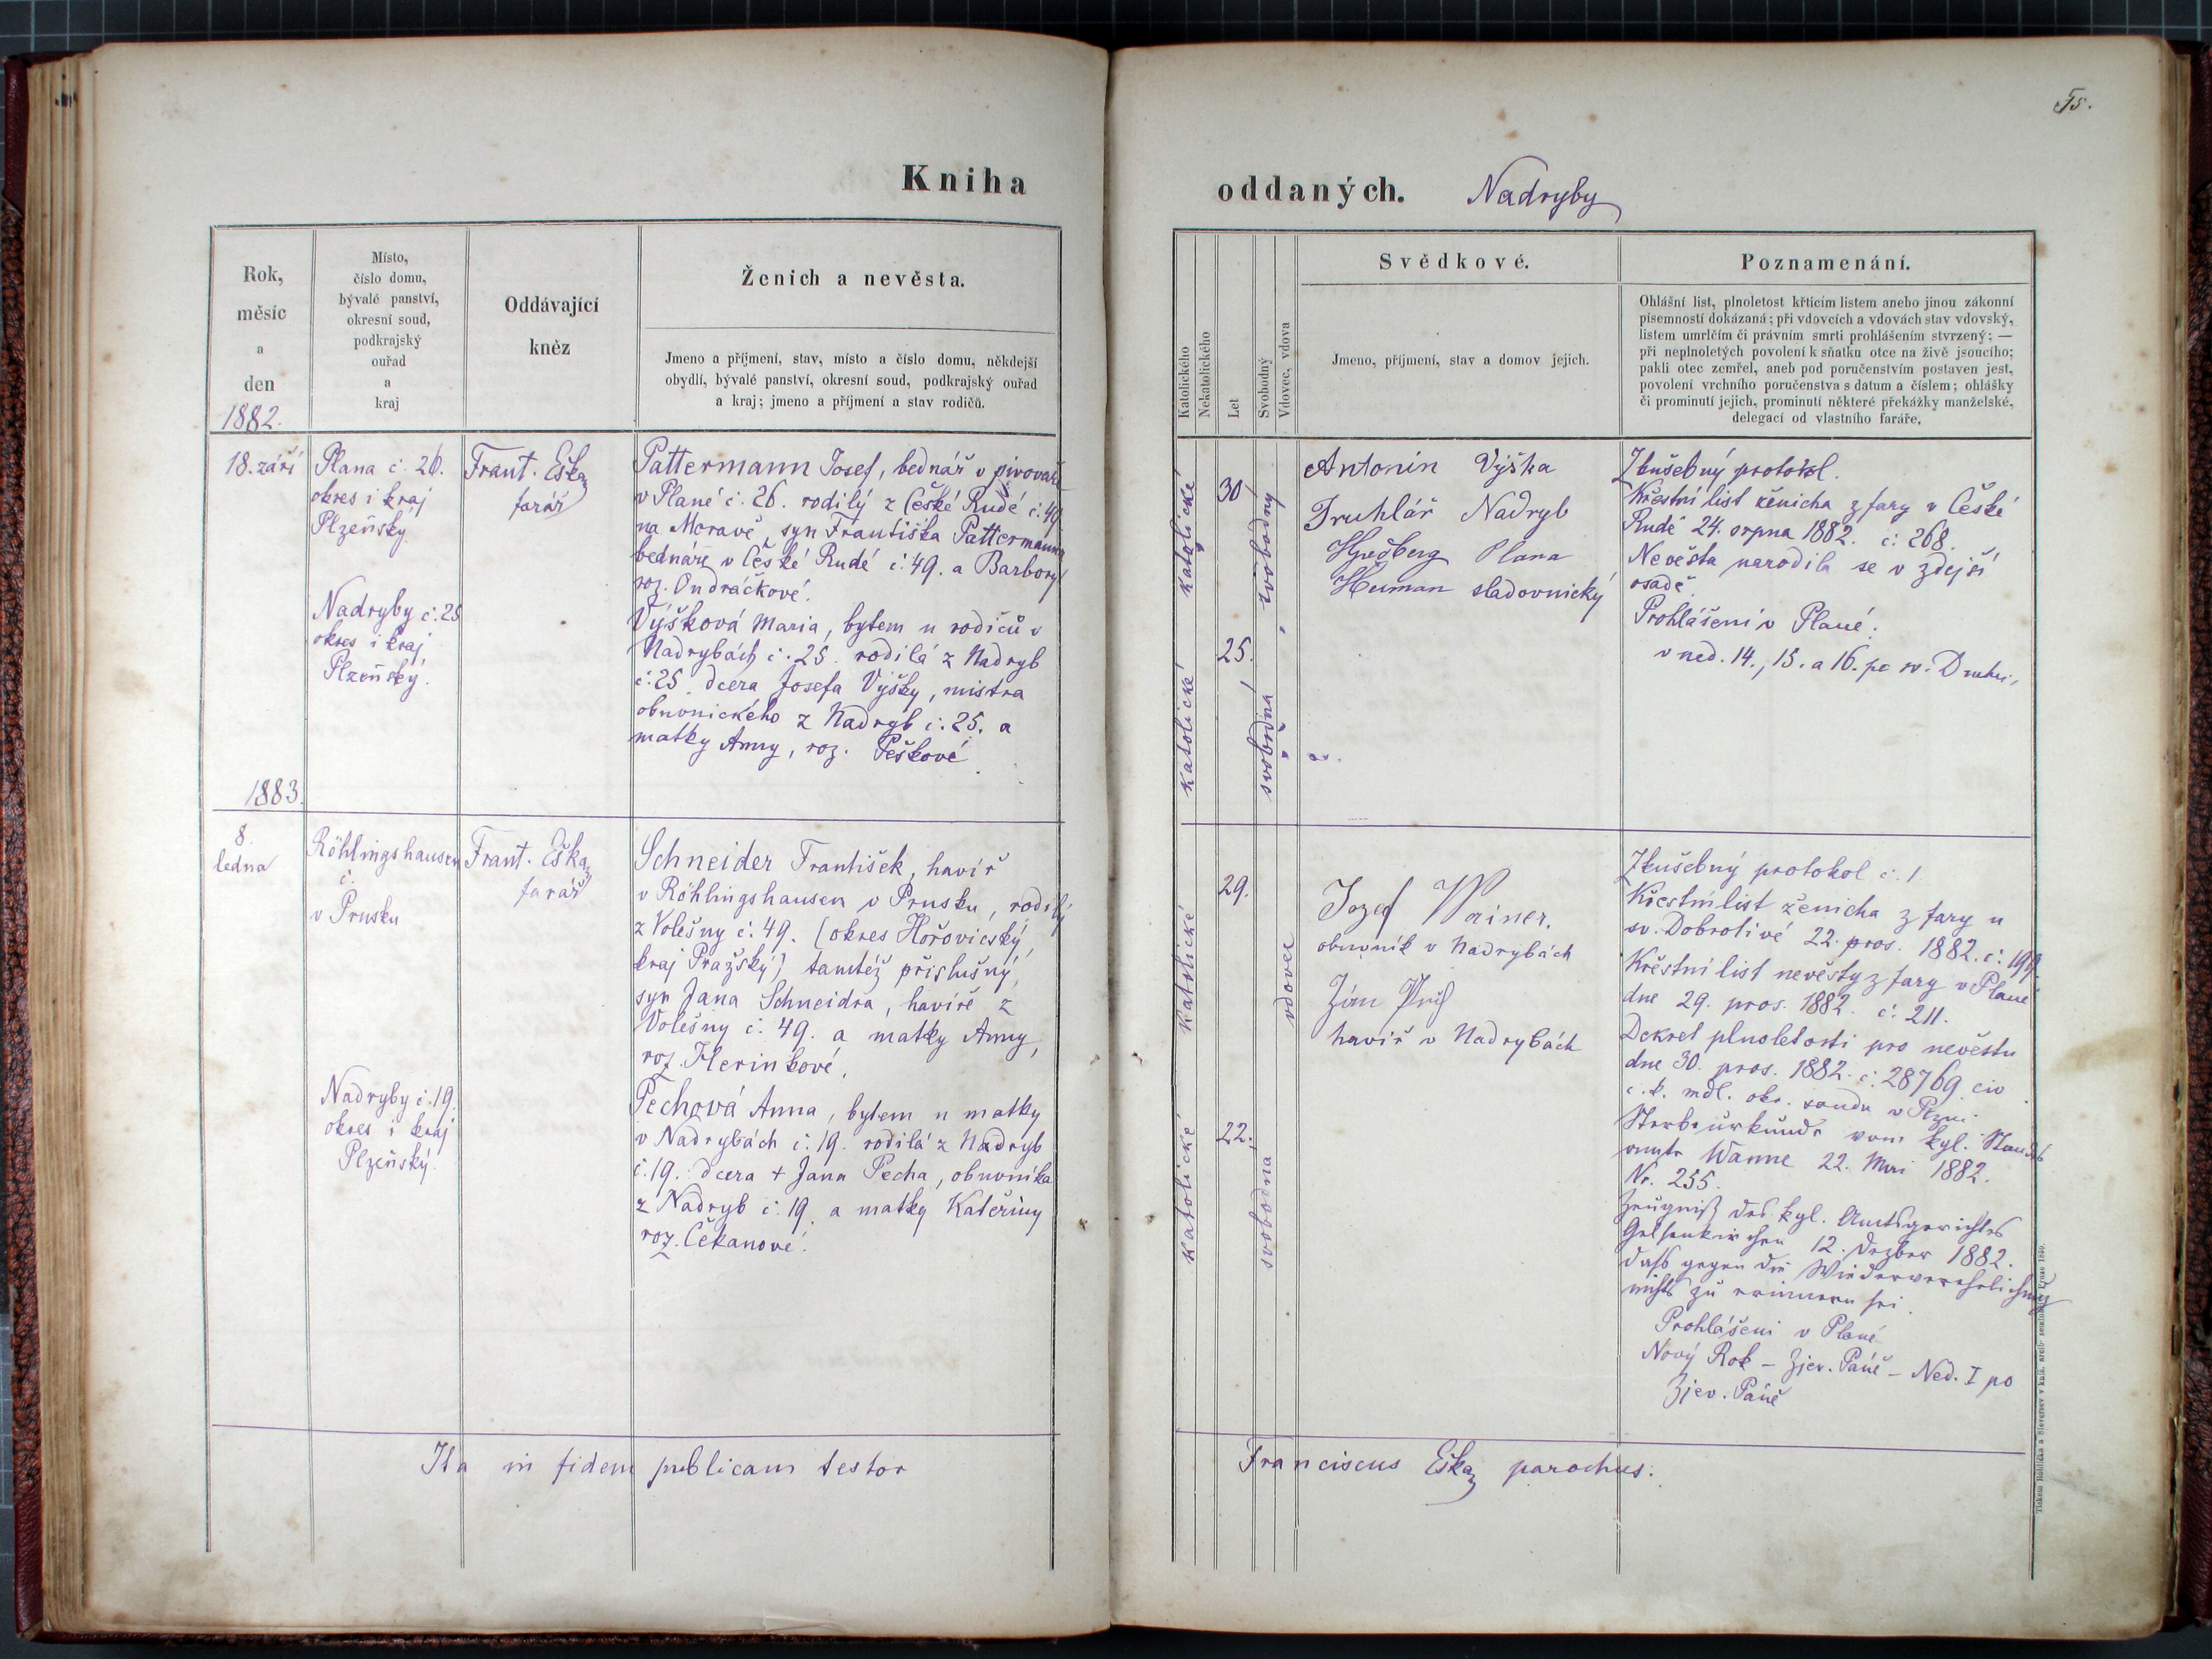 Kniha
Rok,
měsíc
a
den
1882.
Místo,
číslo domu,
bývalé panství,
okresní soud,
podkrajský
ouřad
a
kraj
Oddávající
kněz
Ženich a nevěsta.
Jmeno a příjmení, stav, místo a číslo domu, někdejší
obydlí, bývalé panství, okresní soud, podkrajský ouřad
a kraj; jmeno a příjmení a stav rodičů.
18. září
Plana č. 26.
okres i kraj
Plzeňský
Frant. Eška
farář
Pattermann Josef, bednář v pivovaře
v Plané č. 26. rodilý z České Rudé č. 49
na Moravě, syn Františka Pattermanna
bednáře v České Rudé č. 49. a Barbory
roz. Ondráčkové.
Nadryby č. 25
okres i kraj
Plzeňský.
Výšková Maria, bytem u rodičů v
Nadrybách č. 25. rodilá z Nadryb
č. 25. dcera Josefa Výšky, mistra
obuvnického z Nadryb č. 25. a
matky Anny, roz. Peškové
1883.
8.
ledna
Röhlingshausen
č.
v Prusku
Frant. Eška
farář
Schneider František, havíř
v Röhlingshausen v Prusku, rodilý
z Volešny č. 49. (okres Hořovický,
kraj Pražský) tamtéž příslušný,
syn Jana Schneidra, havíře z
Volešny č. 49. a matky Anny,
roz. Herinkové.
Nadryby č. 19.
okres i kraj
Plzeňský.
Pechová Anna, bytem u matky
v Nadrybách č. 19. rodilá z Nadryb
č. 19. dcera + Jana Pecha, obuvníka
z Nadryb č. 19. a matky Kateřiny
roz. Čekanové.
Ita in fidem publicam testor
75.
oddaných. Nadryby
Katolického
Nekatolického
Let
Svobodný
Vdovec, vdova
Svědkové.
Jmeno, příjmení, stav a domov jejich.
Poznamenání.
Ohlášní list, plnoletost křticím listem anebo jinou zákonní
písemností dokázaná; při vdovcích a vdovách stav vdovský,
listem umrlčím či právním smrti prohlášením stvrzený; —
při neplnoletých povolení k sňatku otce na živě jsoucího;
pakli otec zemřel, aneb pod poručenstvím postaven jest,
povolení vrchního poručenstva s datum a číslem; ohlášky
či prominutí jejich, prominutí některé překážky manželské,
delegací od vlastního faráře.
katolické
30
svobodný
Antonín Výška
Truhlář Nadryb
Plana
Heiman sladovnický
Zkušebný protokol.
Křestní list ženicha z fary v České
Rudé 24. srpna 1882. č. 268.
Nevěsta narodila se v zdejší
osadě
Prohlášení v Plané.
v ned. 14., 15. a 16. po sv. Duchu,
katolické
25.
svobodná
katolické
29.
vdovec
Jozef Wainer.
obuvník v Nadrybách
havíř v Nadrybách
Zkušebný protokol č. 1
Křestní list ženicha z fary u
sv. Dobrotivé 22. pros. 1882. č. 199.
Křestní list nevěsty z fary v Plané
dne 29. pros. 1882. č. 211.
Dekret plnoletosti pro nevěstu
dne 30. pros. 1882. č. 28769 civ
c. k. mdl. okr. soudu v Plzni
Sterbeurkunde vom kgl. Standes
amte Wanne 22. Mai 1882.
Nr. 255.
Zeugniß des kgl. Amtsgerichtes
Gelsenkirchen 12. Dezber 1882.
daß gegen die Wiederverehelichung
nichts zu erinnern sei.
Prohlášení v Plané
Nový Rok – Zjev. Páně – Ned. I po
Zjev. Páně
katolické
22.
svobodná
Franciscus Eška parochus.